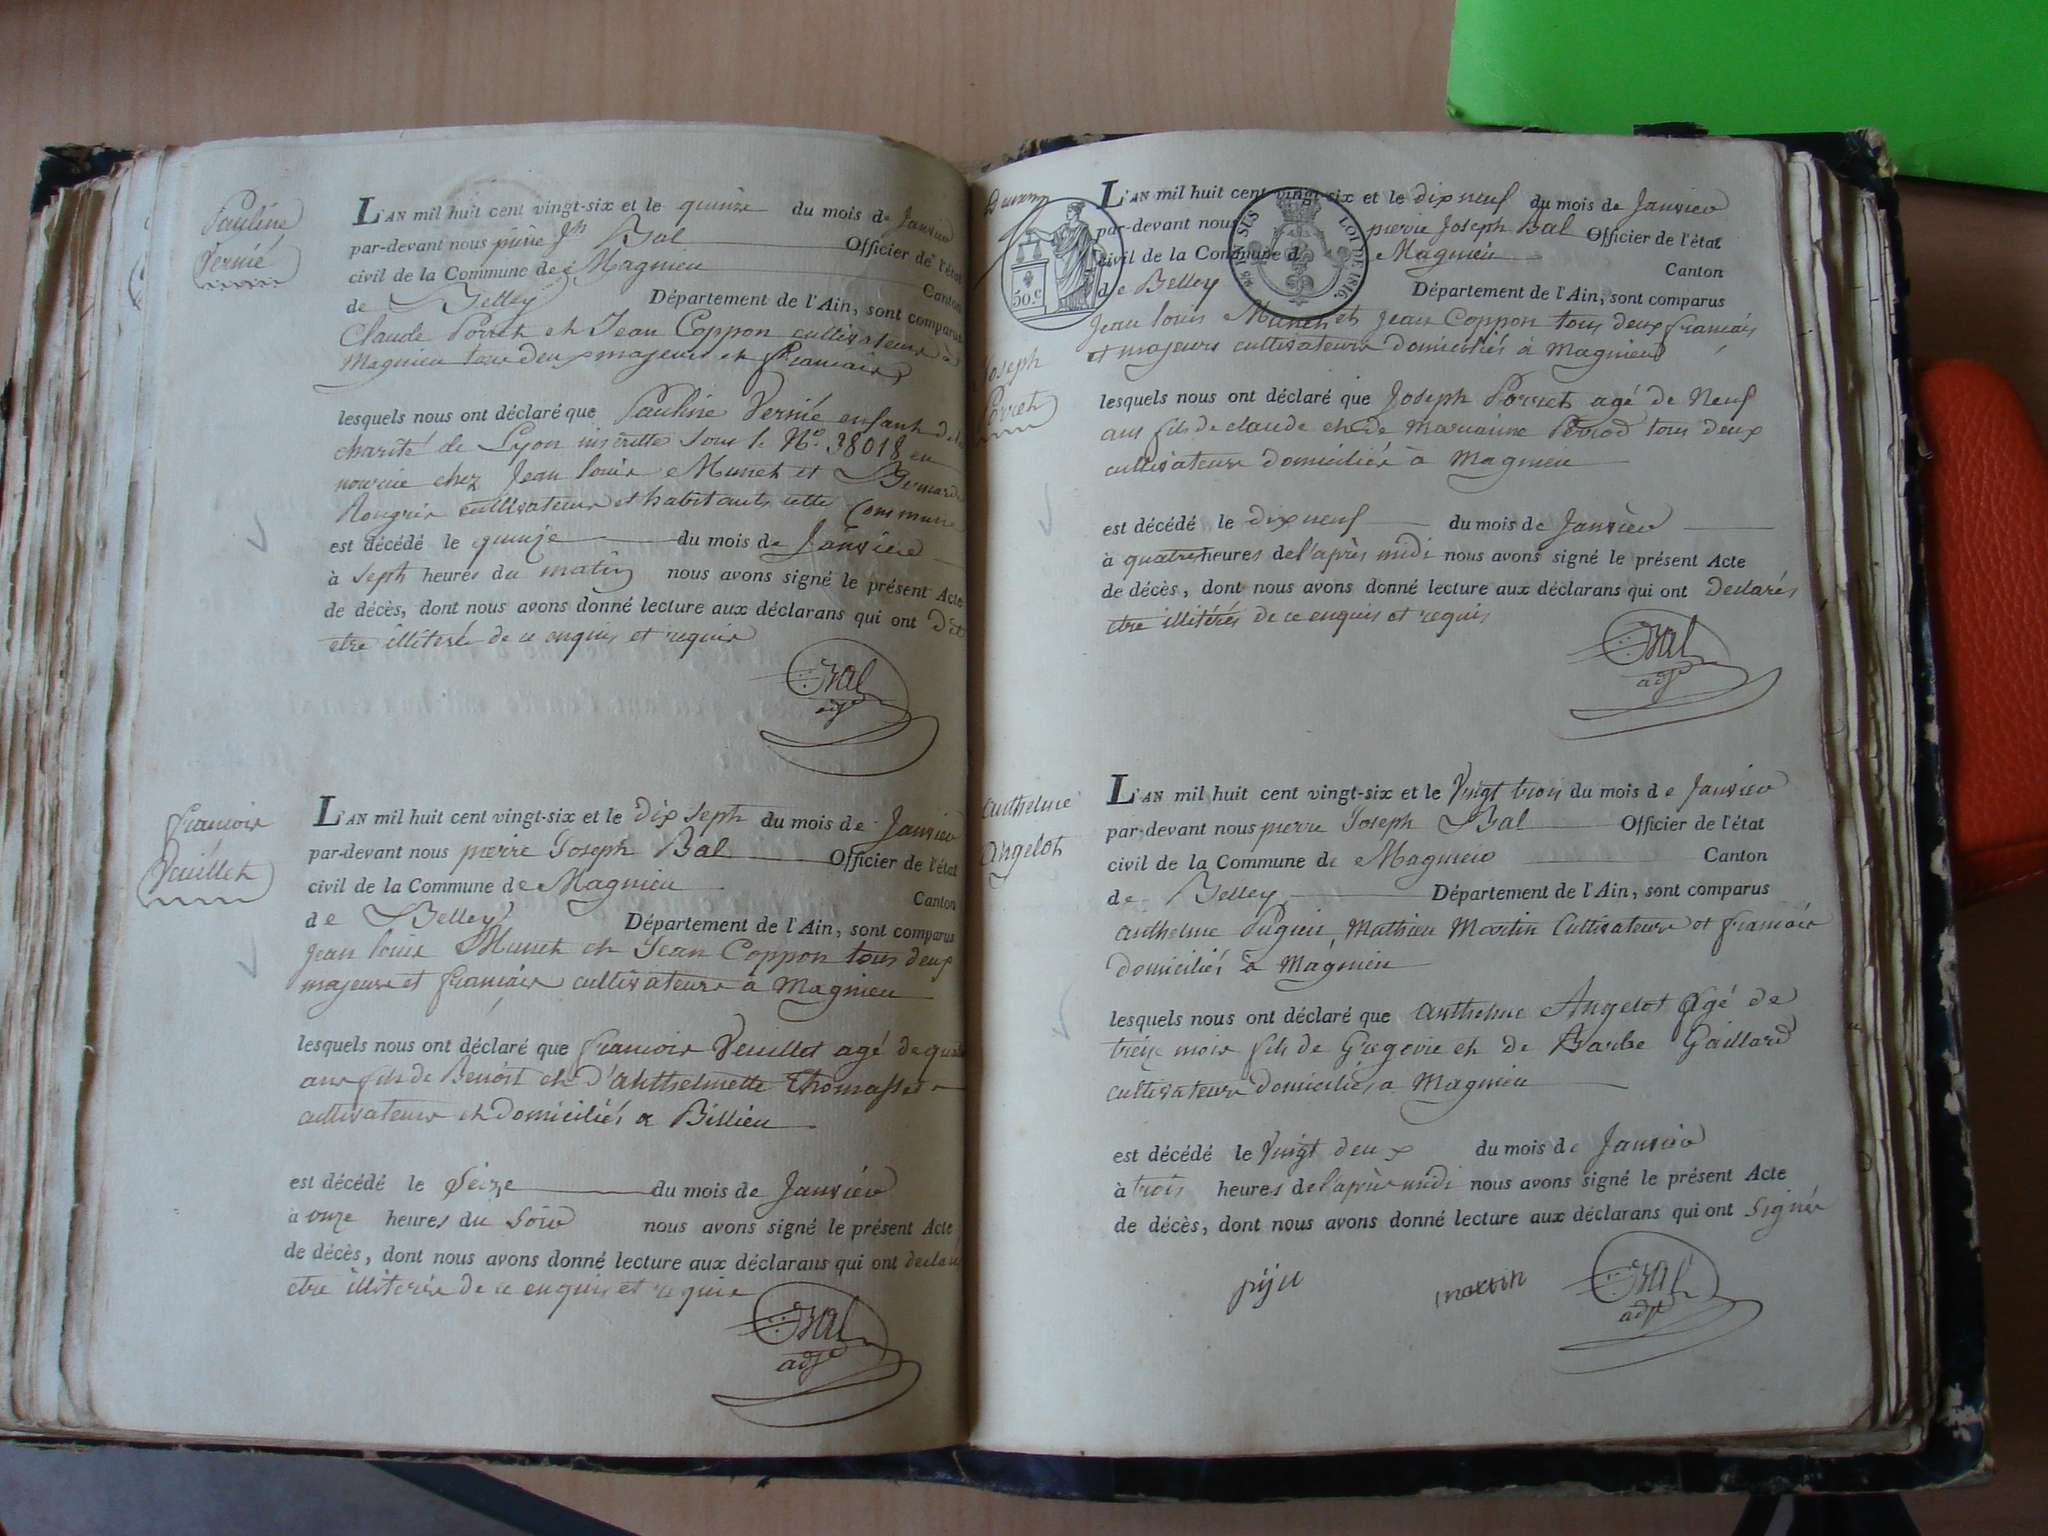 Pauline
Vernié
L'AN mil huit cent vingt-six et le quinze du mois de Janvier
par-devant nous pierre Jh Bal Officier de l'état
civil de la Commune de Magnieu Canton
de Belley Département de l'Ain, sont comparus
Claude Porret et Jean Coppon cultivateurs à
Magnieu tous deux majeurs et francais
lesquels nous ont déclaré que Pauline Vernié enfant de la
charité de Lyon inscritte sous le No. 38018 en
nourice chez Jean louis Munet et Bernarde
cultivateurs et habitants cette Commune
est décédé le quinze du mois de Janvier
à sept heures du matin nous avons signé le présent Acte
de décès, dont nous avons donné lecture aux déclarans qui ont Dit
etre illiteré de ce enquis et requis
Bal
adjt
francois
Veuillet
L'AN mil huit cent vingt-six et le dix sept du mois de Janvier
par-devant nous pierre Joseph Bal Officier de l'état
civil de la Commune de Magnieu Canton
de Belley Département de l'Ain, sont comparus
Jean louis Munet et Jean Coppon tous deux
majeurs et francais cultivateurs à Magnieu
lesquels nous ont déclaré que francois Veuillet agé de
ans fils de Benoit et d'Anthelmette Thomasset
cultivateurs et domiciliés a Billieu
est décédé le Seize du mois de Janvier
à onze heures du Soir nous avons signé le présent Acte
de décès, dont nous avons donné lecture aux déclarans qui ont declaré
etre illiterés de ce enquis et requis
Bal
adjt
50.c
EN SUS LOI DE 1816
Joseph
Porret
L'AN mil huit cent vingt-six et le dix neuf du mois de Janvier
par-devant nous pierre Joseph Bal Officier de l'état
civil de la Commune d Magnieu Canton
de Belley Département de l'Ain, sont comparus
Jean louis Munet et Jean Coppon tous deux francais
et majeurs cultivateurs domiciliés à Magnieu
lesquels nous ont déclaré que Joseph Porret agé de Neuf
ans fils de claude et de marianne Perrod tous deux
cultivateurs domiciliés à Magnieu
est décédé le dix neuf du mois de Janvier
à quatre heures de l'après midi nous avons signé le présent Acte
de décès, dont nous avons donné lecture aux déclarans qui ont Déclarés
etre illitérés de ce enquis et requis
Bal
adjt
anthelme
Angelot
L'AN mil huit cent vingt-six et le Vingt trois du mois de Janvier
par-devant nous pierre Joseph Bal Officier de l'état
civil de la Commune de Magnieu Canton
de Belley Département de l'Ain, sont comparus
anthelme Pugieu, Mathieu Martin Cultivateurs et francais
domiciliés à Magnieu
lesquels nous ont déclaré que anthelme Angelot agé de
treize mois fils de Gregoire et de Barbe Gaillard
cultivateurs domiciliés a Magnieu
est décédé le Vingt deux du mois de Janvier
à trois heures de l'après midi nous avons signé le présent Acte
de décès, dont nous avons donné lecture aux déclarans qui ont Signés
piju martin Bal
adjt